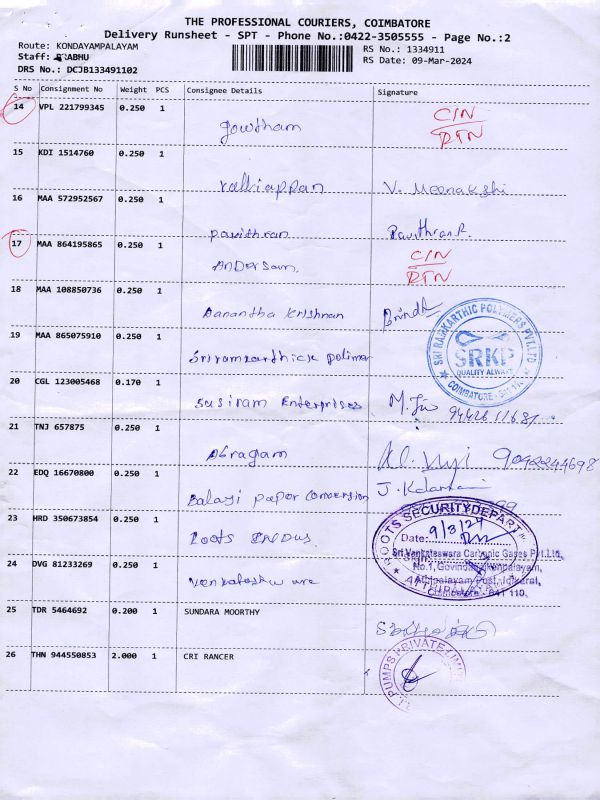 THE PROFESSIONAL COURIERS, COIMBATORE
Delivery Runsheet - SPT - Phone No.:0422-3505555 - Page No.:2
Route: KONDAYAMPALAYAM
RS No.: 1334911
Staff: PRABHU
RS Date: 09-Mar-2024
DRS No.: DCJB133491102
S No Consignment No Weight PCS Consignee Details Signature
14 VPL 221799345 0.250 1
Gowtham
CIN
RTN
15 KDI 1514760 0.250 1
Valliappan V. Meenakshi
16 MAA 572952567 0.250 1
Pavithran Pavithran.R.
17 MAA 864195865 0.250 1
Anderson.
CIN
RTN
18 MAA 108850736 0.250 1
Danantha Krishnan
19 MAA 865075910 0.250 1
Sriramkarthick Polimer
SRI RAMKARTHIC POLYMERS PVT.LTD
SRKP
QUALITY ALWAYS
COIMBATORE
20 CGL 123005468 0.170 1
Sasiram Enterprises
21 TNJ 657875 0.250 1
Abragam 9092244698
22 EDQ 16670800 0.250 1
Balaji Paper Conversion
23 HRD 350673854 0.250 1
Roots INDUS.
ROOTS SECURITY DEPART
Date: 9/3/24
24 DVG 81233269 0.250 1
Venkateshwara
Sri Venkateswara Carbonic Gases Pvt.Ltd.,
Coimbatore - 641 110.
25 TDR 5464692 0.200 1 SUNDARA MOORTHY
26 THN 944550853 2.000 1 CRI RANCER
PUMPS PRIVATE LIMITED